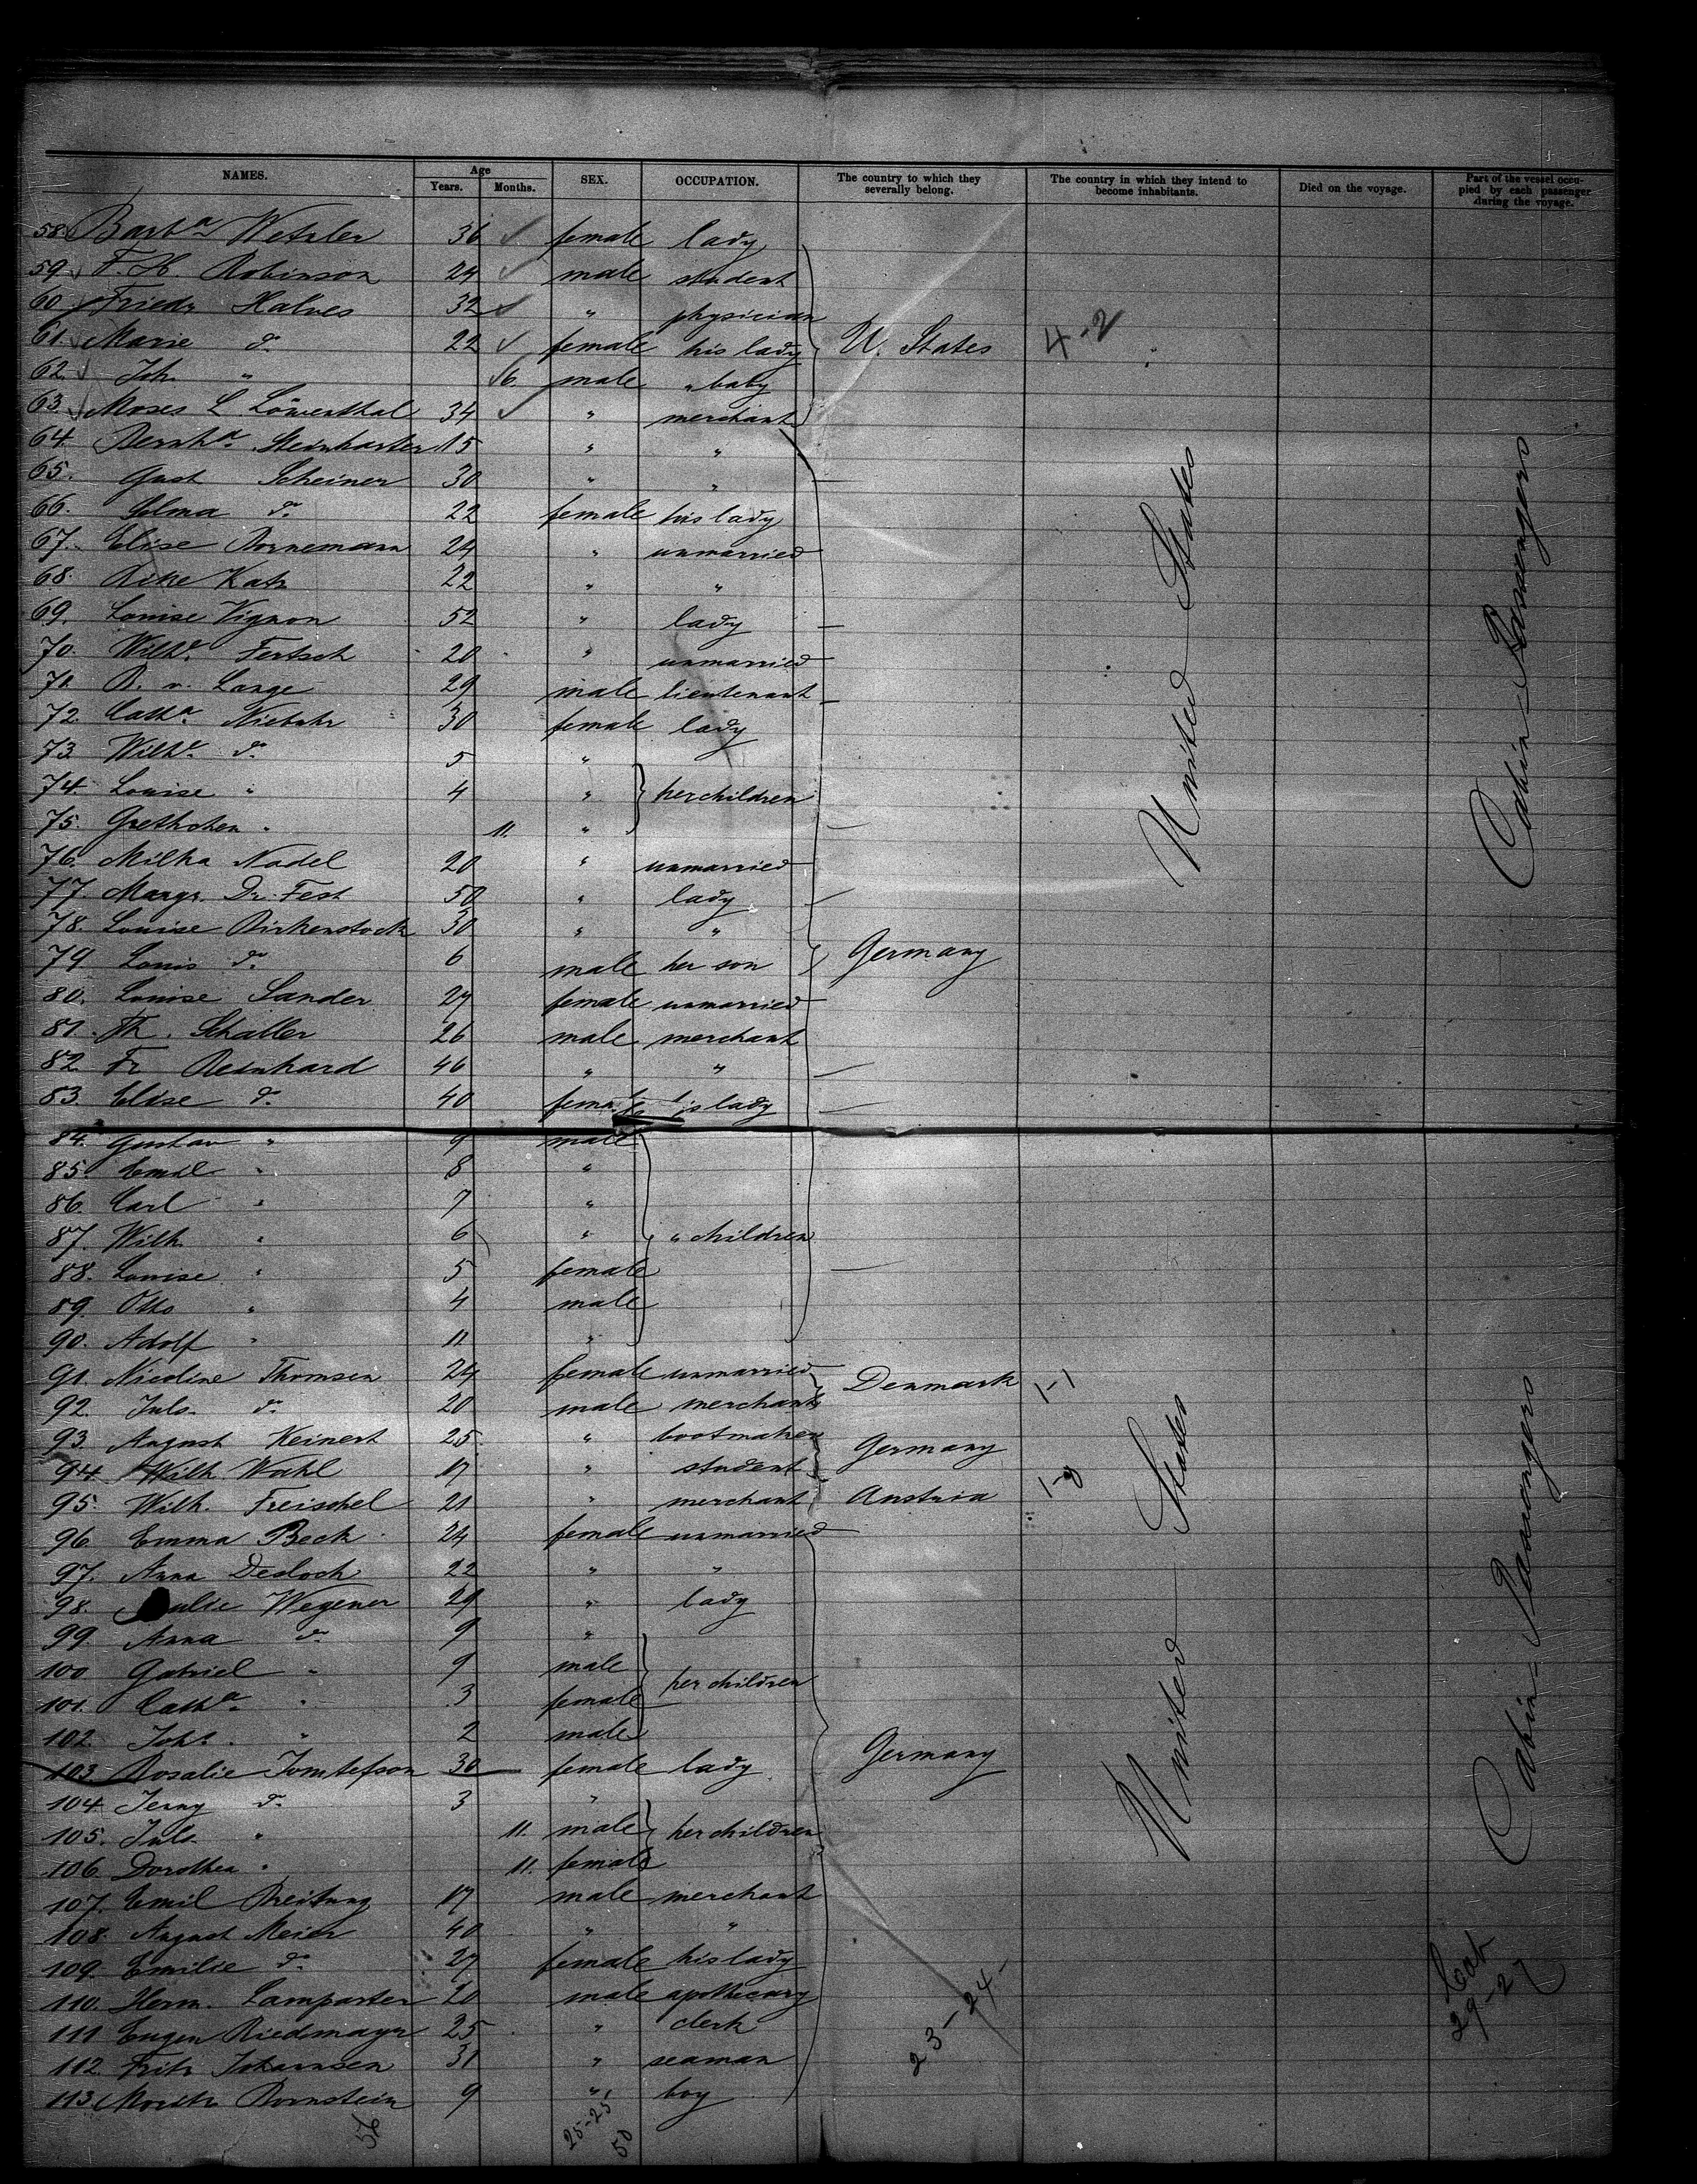 NAMES. Age SEX. OCCUPATION. The country to which they severally belong. The country in which they intend to become inhabitants. Died on the voyage. Part of the vessel occupied by each passenger during the voyage.
Years. Months.
58. Barba Wetzler 36 female lady
59. F. H. Robinson 24 male student
60. Friedr Halves 32 " physician
61. Marie do 22 female his lady U. States 4-2
62. Joh. " 6. male " baby
63. Moses L Löwenthal 34 " merchant
64. Bernhd. Steinharter 15 " "
65. Gust Scheiner 30 " "
66. Selma do 22 female his lady
67. Elise Bornemann 24 " unmarried
68. Rike Katz 22 " "
69. Louise Vignon 52 " lady
70. Wilhe. Fertsch 20 " unmarried
71. R. v. Lange 29 male lieutenant
72. Catha. Niebuhr 30 female lady
73. Wilhe. do 5 "
74. Louise " 4 " her children
75. Grethchen " 11. "
76. Milka Nadel 20 " unmarried
77. Margr. Dr. Fest 50 " lady
78. Louise Birkenstock 30 " "
79 Louis do 6 male her son Germany
80. Louise Sander 27 female unmarried
81. Th. Schaller 26 male merchant
82. Fr Reinhard 46 " "
83. Elise do 40 female lady
United States
Cabin-Passengers
84. Gustav " 9 male
85. Emil " 8 "
86. Carl " 7 "
87. Wilh. " 6 " " children
88. Louise " 5 female
89. Otto " 4 male
90. Adolf " 11 "
91. Nicoline Thomsen 24 female unmarried Denmark 1-1
92. Juls. do 20 male merchant
93. August Keinert 25 " bootmaker Germany
94. Wilh Wahl 17 " student
95. Wilh. Freischel 21 " merchant Austria 1-0
96. Emma Beck 24 female unmarried
97. Anna Desloch 22 " "
98. Julie Wegener 29 " lady
99. Anna do 9 "
100 Gabriel " 9 male her children
101. Catha. " 3 female
102. Johs. " 2 male
103. Rosalie 30 female lady Germany
104. Jenny do 3 "
105. Juls. " 11. male her children
106. Dorothea " 11. female
107. Emil Breitung 17 male merchant
108. August Meier 40 " "
109. Emilie do 27 female his lady
110. Herm. Lamparter 20 male apothecary
111 Eugen Riedmayr 25 " clerk
112. Fritz Johannsen 31 " seaman
113. Moritz Bornstein 9 " boy
United States
Cabin-Passengers
23-24-
Cab
29-27
56
25-25
50